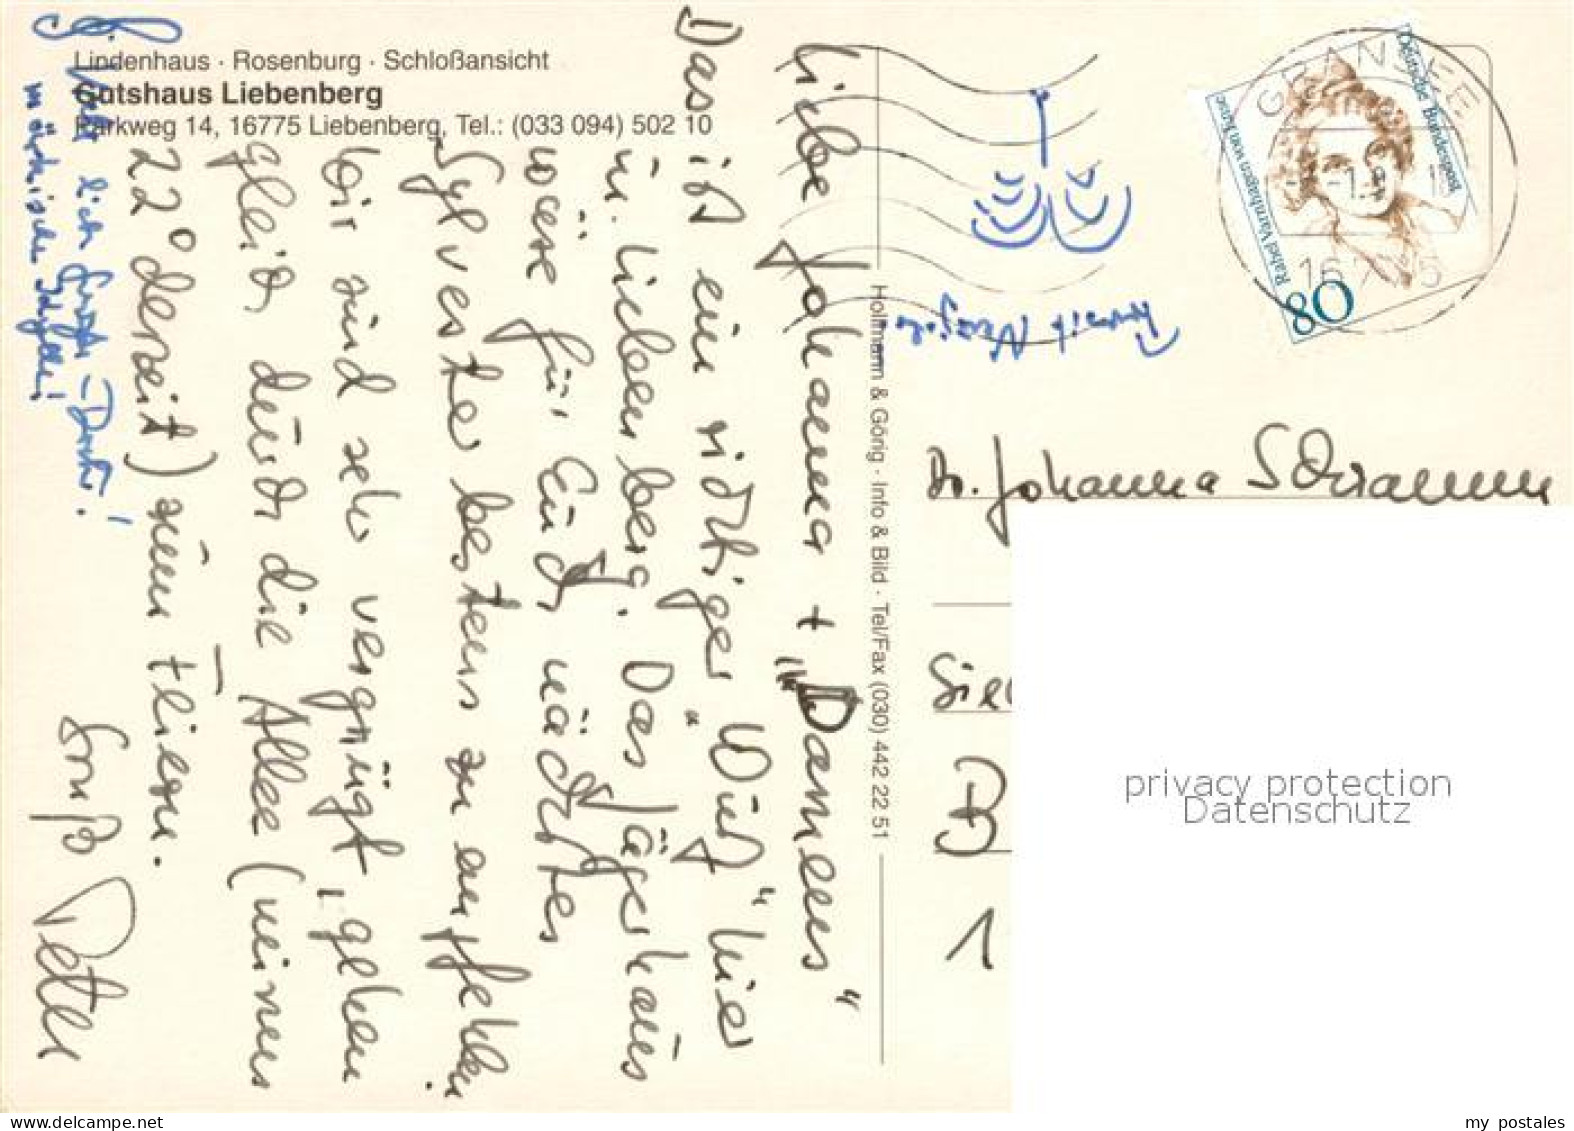 Lindenhaus · Rosenburg · Schloßansicht
Gutshaus Liebenberg
Parkweg 14, 16775 Liebenberg, Tel.: (033 094) 502 10
Liebe Johanna + "Dameeus"
Das ist ein richtiger "Würg" hier
in Liebenberg. Das Jägerhaus
wäre für Euch nächstes
Sylvester bestens zu empfehlen.
Wir sind sehr vergnügt, gehen
gleich durch die Allee (minus
22° derzeit) zum Fliegen.
Gruß Peter
märkische Idylle!
Hofmann & Görig · Info & Bild · Tel/Fax (030) 442 22 51
Prosit Neujahr
GRANSEE
16775
Deutsche Bundespost
Rahel Varnhagen von Ense
80
Dr. Johanna Schramm
1
privacy protection
Datenschutz
my postales